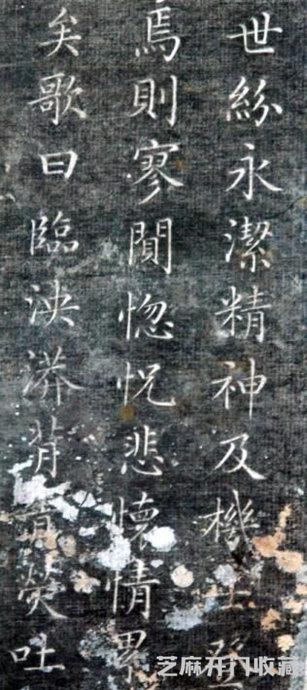 世紛永潔精神及機士登
焉則寥闃惚怳悲懷情累
矣歌曰臨泱漭背青熒吐
芝麻开门收藏